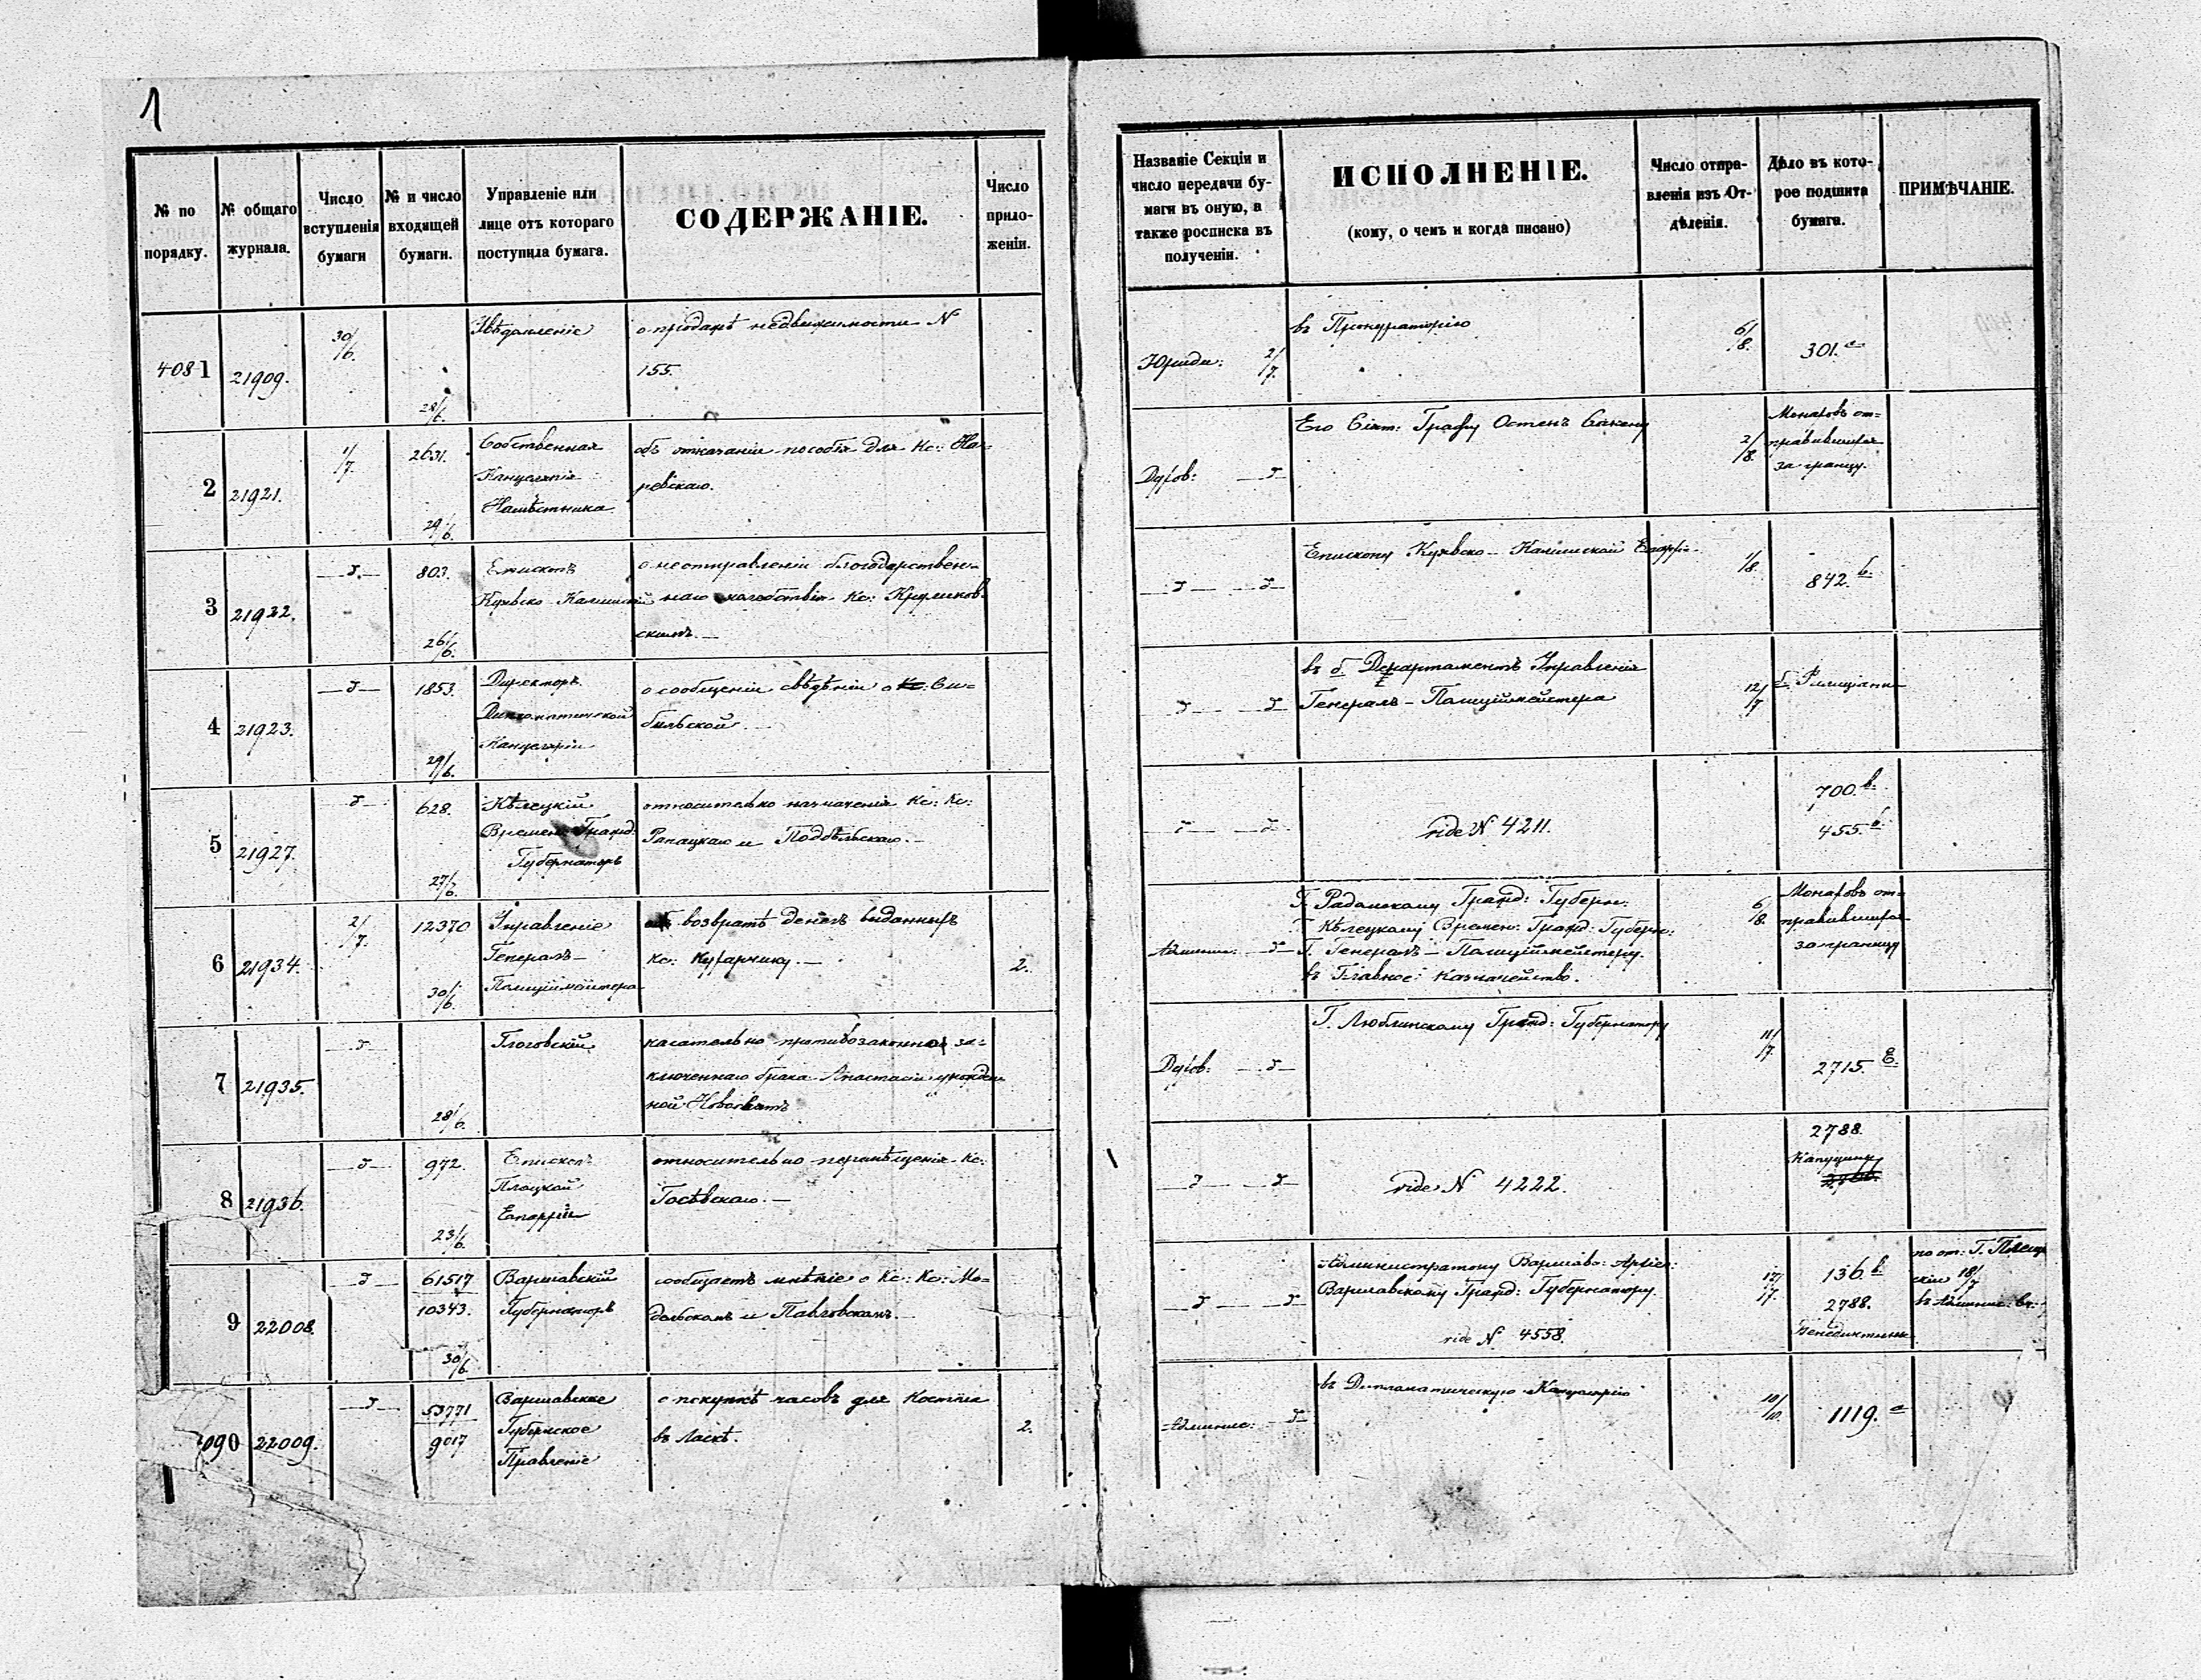 1
№ по
порядку.
№ общаго
журнала.
Число
вступленія
бумаги
№ и число
входящей
бумаги.
Управленіе или
лице отъ котораго
поступила бумага.
СОДЕРЖАНІЕ.
Число
прило-
женій.
Названіе Секціи и
число передачи бу-
маги въ оную, а
также росписка въ
полученіи.
ИСПОЛНЕНІЕ.
(кому, о чемъ и когда писано)
Число отпра-
вленія изъ От-
дѣленія.
Дѣло въ кото-
рое подшита
бумага.
ПРИМѢЧАНІЕ.
4081
21909.
30/6.
28/6.
о продажѣ недвижимости N
155.
Юриди: 2/7.
въ Прокураторію
6/8.
301. a
2
21921.
1/7.
2631.
29/6.
Собственная
Канцелярія
Намѣстника
объ отказаніи пособія для Кс: На-
ревскаго.
Духов: —d—
Его Сіят: Графу Остенъ Сакену
2/8.
Монаховъ от-
правившихся
за границу.
3
21922.
—d.—
803.
26/6.
Епископъ
Куявско-Калишскій
о неотправленіи благодарствен-
наго молебствія Кс: Круликов-
скимъ.—
—d— —d
Епископу Куявско-Калишской Епархіи
1/8.
842. b.
4
21923.
—d—
1853.
29/6.
Директоръ
Дипломатической
Канцеляріи
о сообщеніи свѣдѣній о Кс: Си-
бильской.—
—d— —d
въ d Департаментъ Управленія
Генералъ-Полиціймейстера
12/7
5
21927.
d—
628.
27/6.
Кѣлецкій
Времен: Гражд:
Губернаторъ
относительно назначенія Кс: Кс:
Рапацкаго и Поддѣльскаго.—
—d— —d
vide N 4211.
700. b.
455. b.
6
21934.
2/7.
12370
30/6.
Управленіе
Генералъ-
Полиціймейстера
возвратѣ денегъ выданныхъ
Кс: Кухарчику.—
2.
Админис: —d—
Г. Радомскому Гражд: Губерн:
Г. Кѣлецкому Времен: Гражд: Губерн:
Г. Генералъ-Полиціймейстеру.
въ Главное Казначейство.
6/8.
Монаховъ от-
правившихся
за границу
7
21935.
—d
28/6.
Глоговскій
касательно противозаконно за-
ключеннаго брака Анастасіи урожден-
ной Новосвятъ
Духов: —d—
Г. Люблинскому Гражд: Губернатору
11/7.
2715. E.
8
21936.
—d—
972.
23/6.
Епископъ
Плоцкой
Епархіи
относительно перемѣщенія Кс:
Госѣвскаго.—
—d— —d
vide N 4222.
2788.
Капуцины
9
22008.
—d
61517
10343.
30/6.
Варшавскій
Губернаторъ
сообщаетъ мнѣніе о Кс: Кс: Мо-
дольскомъ и Павловскомъ.—
—d— —d
Администратору Варшавс: Архіеп:
Варшавскому Гражд: Губернатору.
vide N 4558.
12/7.
136. b.
2788.
Бенедиктины
по от: Г. Плещ
скій 18/7
въ Админис: Ст:
090
22009.
—d—
53771
9017
Варшавское
Губернское
Правленіе
о покупкѣ часовъ для Костёла
въ Ласкѣ.
2.
Админис: —d—
въ Дипломатическую Канцелярію
10/10.
1119. a